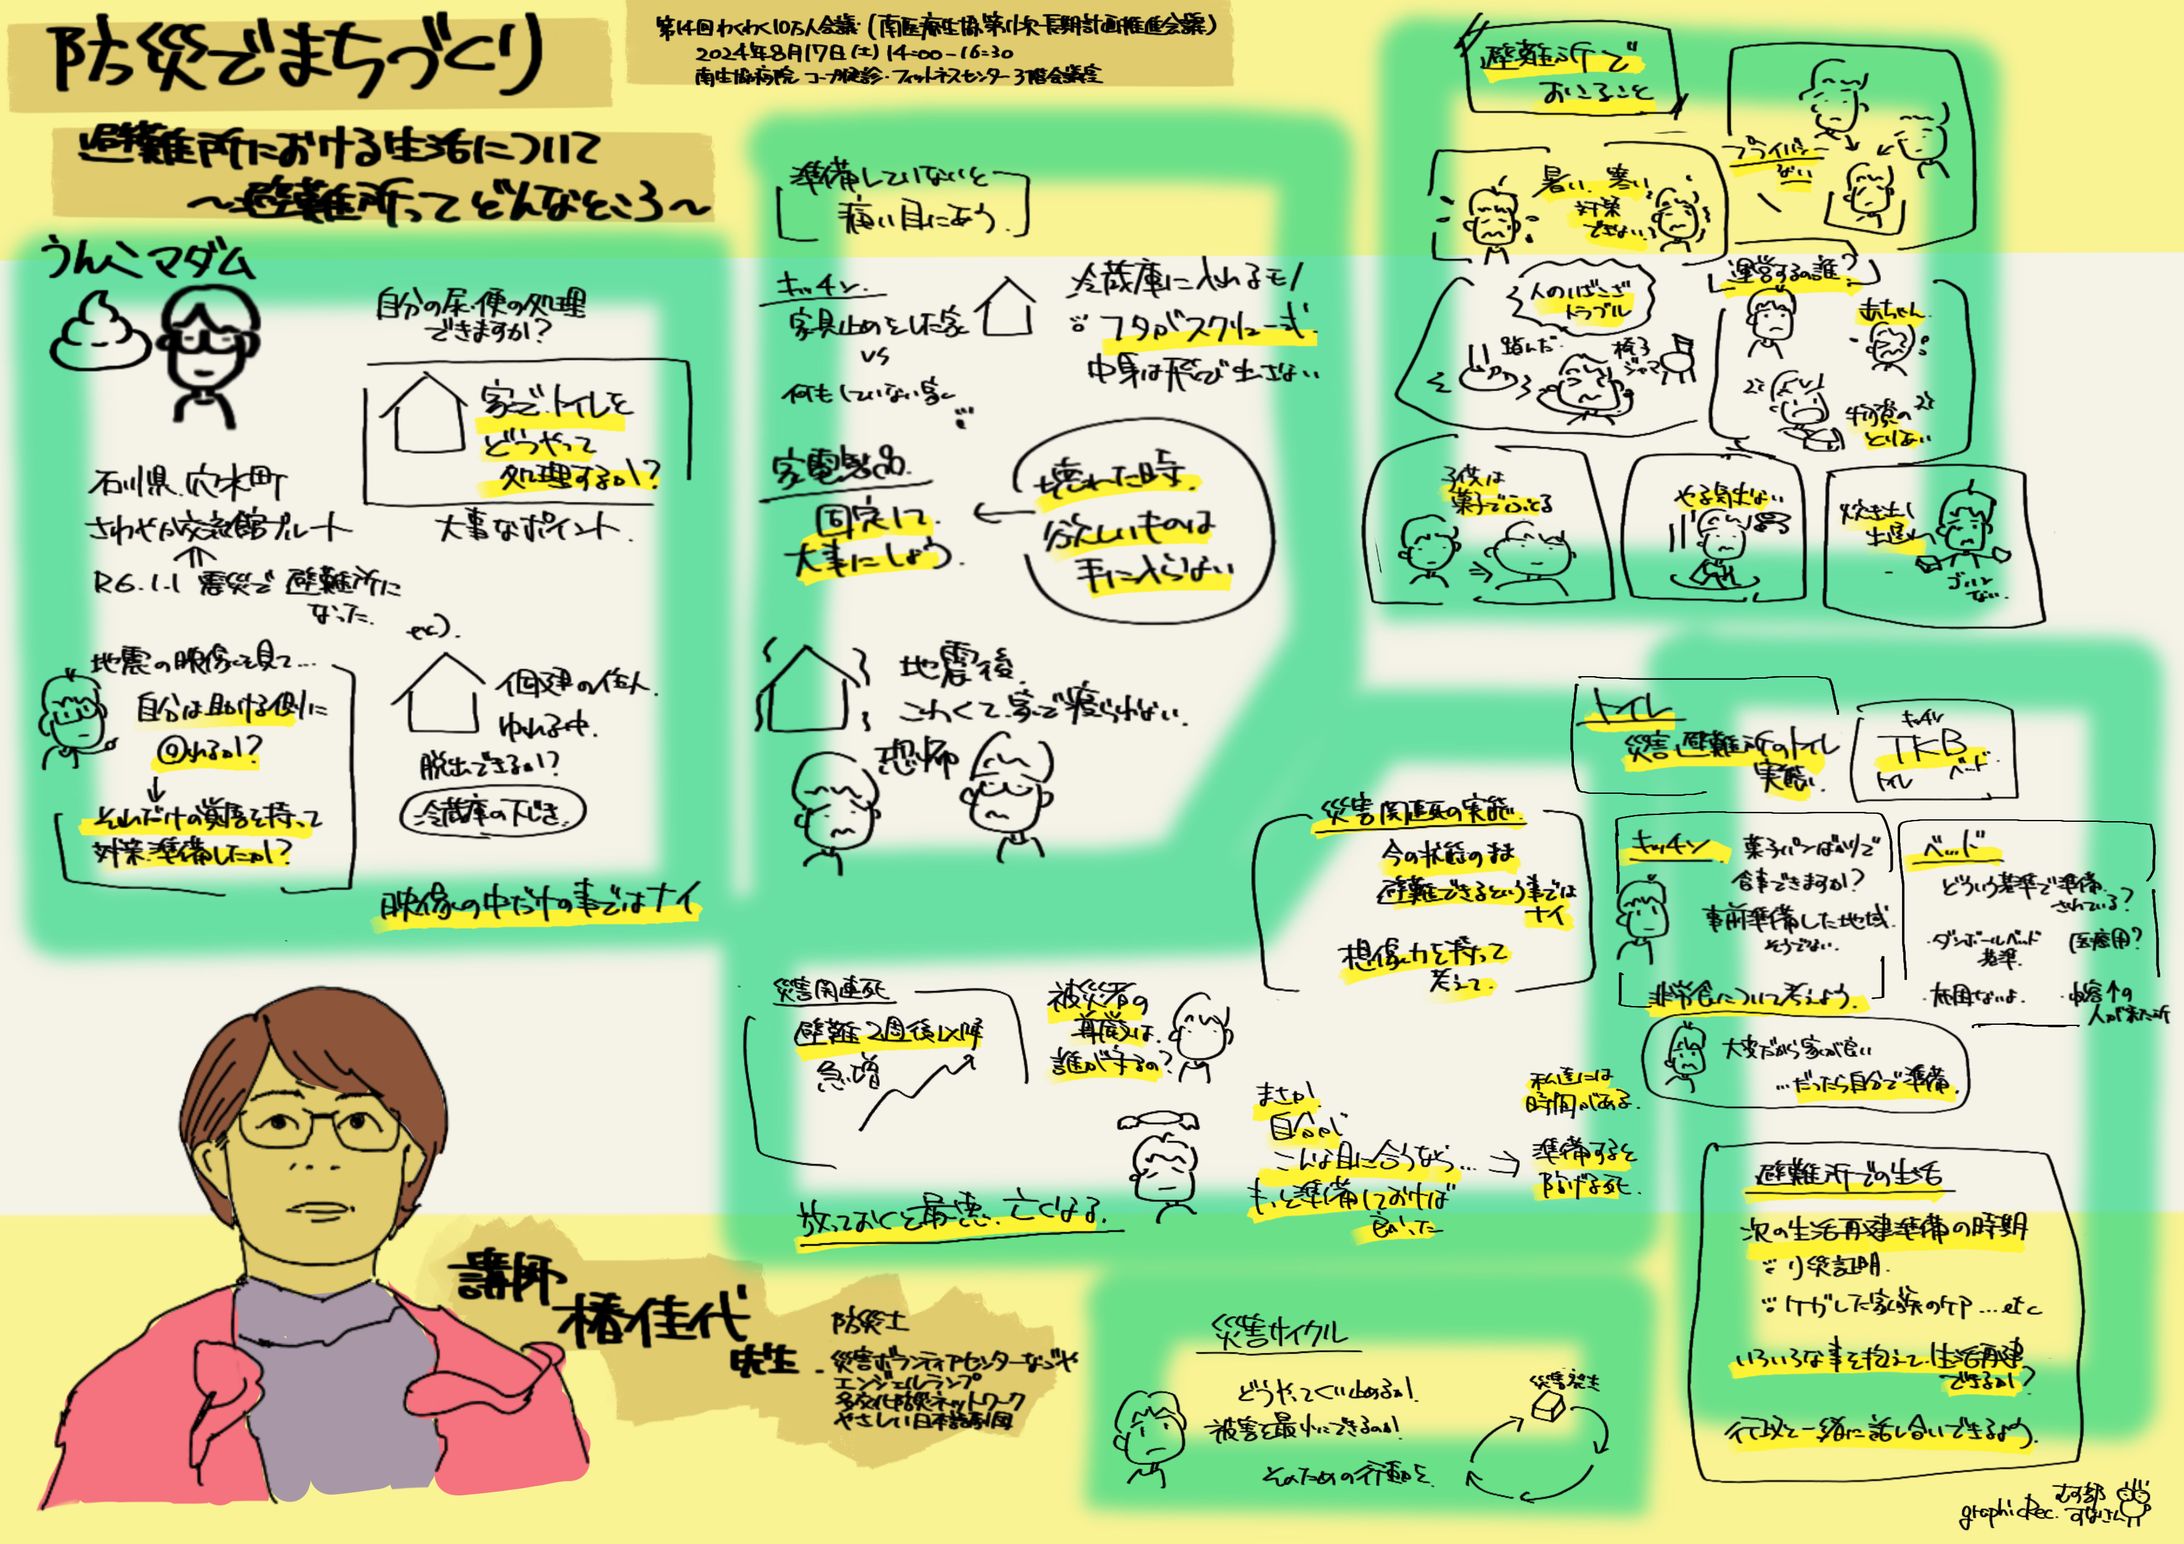 防災でまちづくり
避難所における生活について
～避難所ってどんなところ～
第14回わくわく10万人会議(南医療生協第11次長期計画推進会議)
2024年8月17日(土)14:00-16:30
南生協病院 コープ健診・フィットネスセンター3階会議室
うんこマダム
自分の尿・便の処理
できますか?
家でトイレを
どうやって
処理するか?
大事なポイント
石川県穴水町
さわやか交流館プルート
R6.1.1 震災で避難所に
なった.
地震の映像を見て…
自分は助ける側に
@れるか?
それだけの覚悟を持って
対策準備したか?
etc).
個建の住人.
ゆれる中.
脱出できるか?
冷蔵庫の下じき.
映像の中だけの事ではナイ
準備していないと
痛い目にあう.
キッチン.
家具止めをした家
vs
何もしていない家
冷蔵庫に入れるモノ
フタがスクリュー式.
中身は飛び出さない
家電製品.
固定して.
大事にしよう.
壊れた時.
欲しいものは
手に入らない
地震後.
こわくて家で寝られない.
恐怖
避難所で
おこること
プライバシー
ない
暑い 寒い
対策
できない.
運営するの誰?
人のいざこざ
トラブル
踏んだ.
椅子
ジャマ
赤ちゃん.
物資の
とりあい
子供は
菓子でふとる
やる気出ない
炊き出し
出るけど
ゴハン
ない.
トイレ
災害避難所のトイレ
実態.
キッチン
TKB
トイレ ベッド
キッチン
菓子パンばかりで
食事できますか?
事前準備した地域.
そうでない.
非常食について考えよう.
ベッド
どういう基準で準備.
されている?
・ダンボールベッド
基準.
医療用?
・布団ないよ.
・内容↑の
人が来た所
大変だから家が良い
…だったら自分で準備.
災害関連死の実態.
今の状態のまま
避難できるという事では
ナイ
想像力を持って
考えて.
災害関連死
避難2週後以降
急増
被災者の
尊厳は.
誰が守るの?
放っておくと最悪、亡くなる.
まさか.
自分が
こんな目に合うなら…
もっと準備しておけば
良かった
私達には
時間がある.
準備すると
防げる死.
避難所での生活
次の生活再建準備の時期
り災証明.
ケガした家族のケア…etc
いろいろな事を抱えて.生活再建
できるか?
行政と一緒に話し合いできるよう.
災害サイクル
どうやってくい止めるか!
被害を最小にできるのか!
そのための行動を
災害発生
講師
椿佳代
先生.
防災士
災害ボランティアセンターなごや
エンジェルランプ
多文化防災ネットワーク
やさしい日本語
graphicRec.